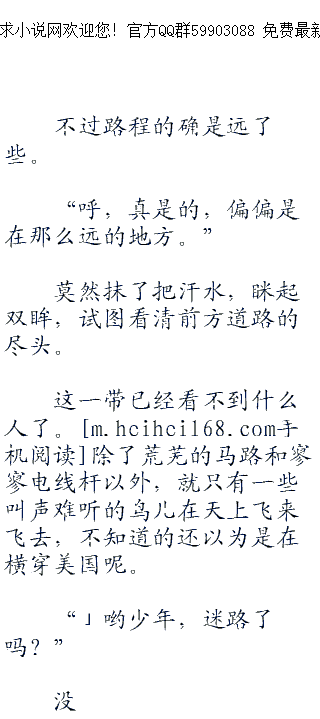 求小说网欢迎您! 官方QQ群59903088 免费最新
不过路程的确是远了
些。
“呼，真是的，偏偏是
在那么远的地方。”
莫然抹了把汗水，眯起
双眸，试图看清前方道路的
尽头。
这一带已经看不到什么
人了。[m.hcihcil68.com手
机阅读]除了荒芜的马路和寥
寥电线杆以外，就只有一些
叫声难听的鸟儿在天上飞来
飞去，不知道的还以为是在
横穿美国呢。
“」哟少年，迷路了
吗？”
没